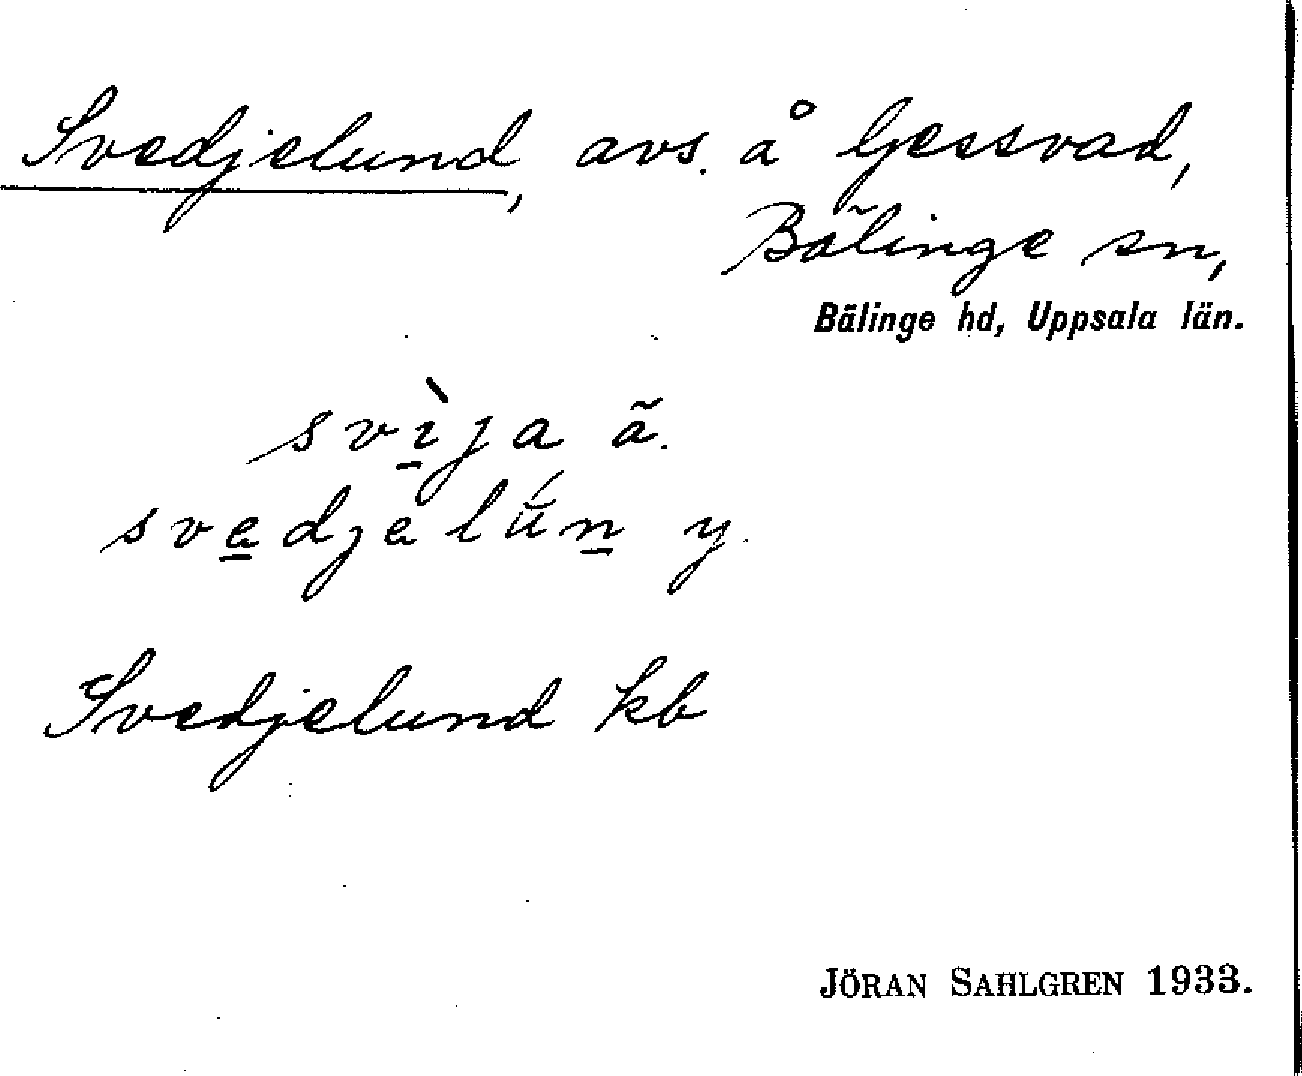 Svedjelund, avs. å Gessvad,
Bälinge sn,
Bälinge hd, Uppsala län.
svì̱ja ä.
sve̱djelǘṉ y.
Svedjelund kb
JÖRAN SAHLGREN 1933.